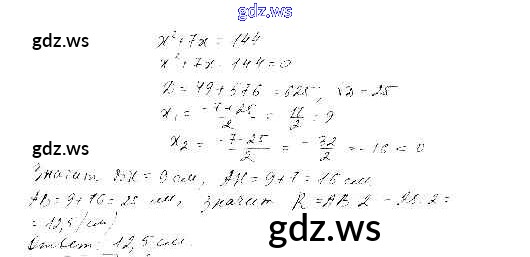 gdz.ws
gdz.ws
x² + 7x = 144
x² + 7x - 144 = 0
D = 49 + 576 = 625; √D = 25
x₁ = (-7+25)/2 = = 9
x₂ = (-7-25)/2 = -32/2 = -16 < 0
gdz.ws
Значит BK = 9 см, AK = 9+7 = 16 см
AB = 9+16 = 25 см, значит R = AB:2 = 25:2 =
= 12,5 (см)
gdz.ws
Ответ: 12,5 см.